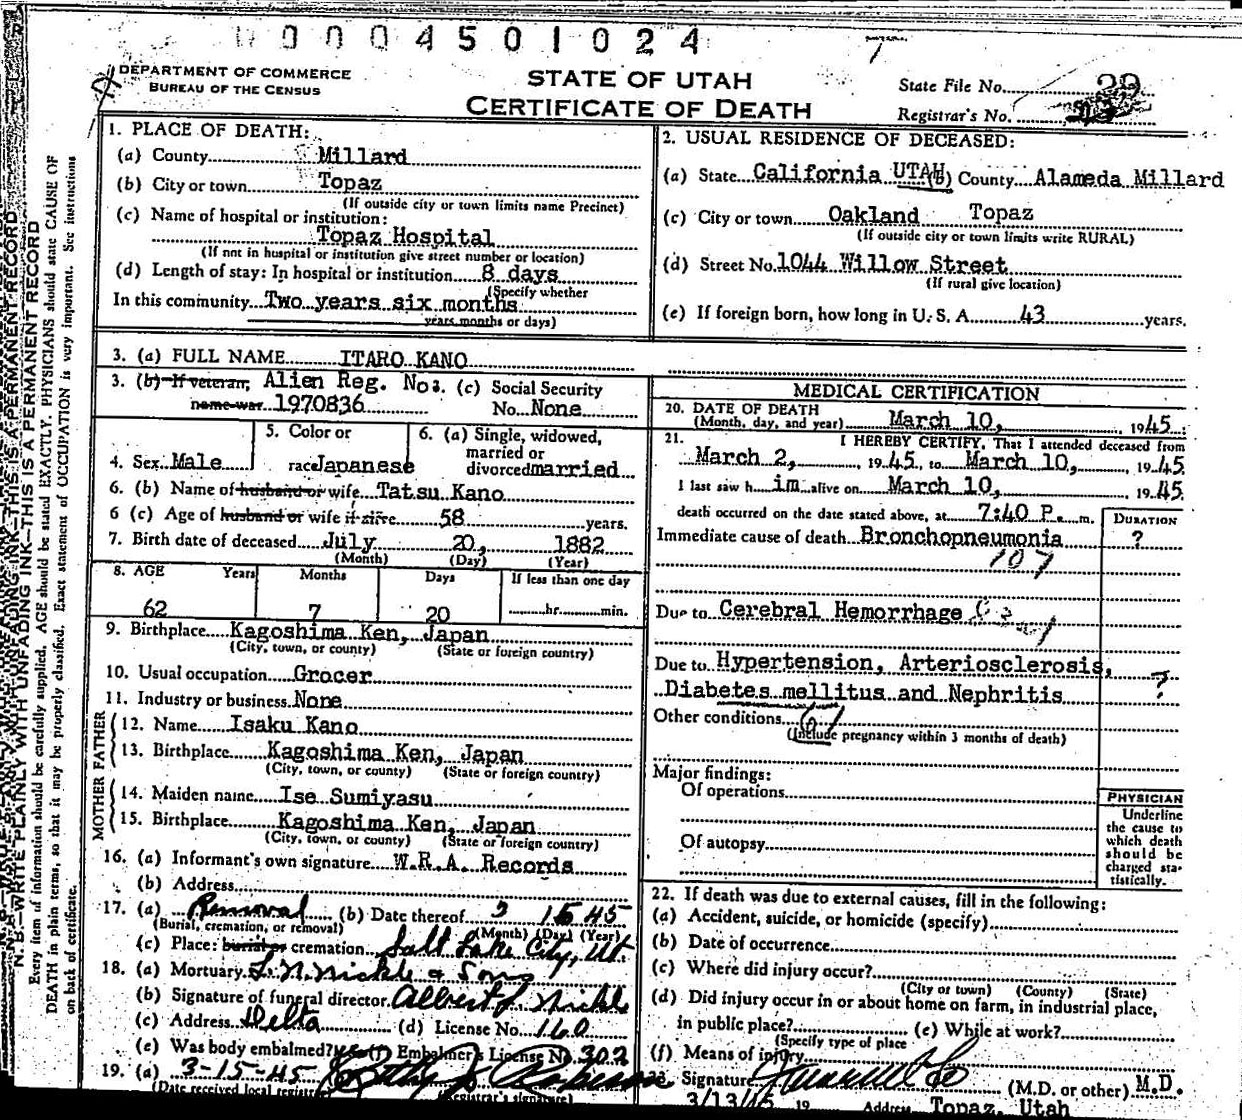 0004501024
DEPARTMENT OF COMMERCE
BUREAU OF THE CENSUS
STATE OF UTAH
CERTIFICATE OF DEATH
State File No. 29
Registrar's No.
1. PLACE OF DEATH:
(a) County Millard
(b) City or town Topaz
(If outside city or town limits name Precinct)
(c) Name of hospital or institution:
Topaz Hospital
(If not in hospital or institution give street number or location)
(d) Length of stay: In hospital or institution 8 days
(Specify whether
In this community Two years six months
years months or days)
2. USUAL RESIDENCE OF DECEASED:
(a) State California UTAH (b) County Alameda Millard
(c) City or town Oakland Topaz
(If outside city or town limits write RURAL)
(d) Street No. 1044 Willow Street
(If rural give location)
(e) If foreign born, how long in U. S. A. 43 years.
3. (a) FULL NAME ITARO KANO
3. (b) If veteran, Alien Reg. No: (c) Social Security
name war 1970836 No. None
4. Sex Male
5. Color or
race Japanese
6. (a) Single, widowed,
married or
divorced married
6. (b) Name of husband or wife Tatsu Kano
6 (c) Age of husband or wife if alive 58 years.
7. Birth date of deceased July 20, 1882
(Month) (Day) (Year)
8. AGE Years Months Days If less than one day
62 7 20 hr. min.
9. Birthplace Kagoshima Ken, Japan
(City, town, or county) (State or foreign country)
10. Usual occupation Grocer
11. Industry or business None
FATHER
12. Name Isaku Kano
13. Birthplace Kagoshima Ken, Japan
(City, town, or county) (State or foreign country)
MOTHER
14. Maiden name Ise Sumiyasu
15. Birthplace Kagoshima Ken, Japan
(City, town, or county) (State or foreign country)
16. (a) Informant's own signature W.R.A. Records
(b) Address
17. (a) Removal (b) Date thereof 3 15 45
(Burial, cremation, or removal) (Month) (Day) (Year)
(c) Place: burial or cremation Salt Lake City, Ut.
18. (a) Mortuary L. N. Nickle & Sons
(b) Signature of funeral director Albert J. Nickle
(c) Address Delta (d) License No. 160
(e) Was body embalmed? yes (f) Embalmer's License No. 302
19. (a) 3-15-45
(Date received local registrar) (Registrar's signature)
MEDICAL CERTIFICATION
20. DATE OF DEATH
(Month, day, and year) March 10, 1945
21. I HEREBY CERTIFY, That I attended deceased from
March 2, 1945, to March 10, 1945
I last saw him alive on March 10, 1945
death occurred on the date stated above, at 7:40 P. m.
DURATION
Immediate cause of death Bronchopneumonia ?
107
Due to Cerebral Hemorrhage
Due to Hypertension, Arteriosclerosis,
Diabetes mellitus and Nephritis ?
Other conditions 61
(Include pregnancy within 3 months of death)
Major findings:
Of operations
Of autopsy
PHYSICIAN
Underline
the cause to
which death
should be
charged sta-
tistically.
22. If death was due to external causes, fill in the following:
(a) Accident, suicide, or homicide (specify)
(b) Date of occurrence
(c) Where did injury occur?
(City or town) (County) (State)
(d) Did injury occur in or about home on farm, in industrial place,
in public place? (e) While at work?
(Specify type of place
(f) Means of injury
Signature (M.D. or other) M.D.
3/13/45 19 Address Topaz, Utah
N. B.—WRITE PLAINLY WITH UNFADING INK—THIS IS A PERMANENT RECORD
Every item of information should be carefully supplied. AGE should be stated EXACTLY. PHYSICIANS should state CAUSE OF
DEATH in plain terms, so that it may be properly classified. Exact statement of OCCUPATION is very important. See instructions
on back of certificate.